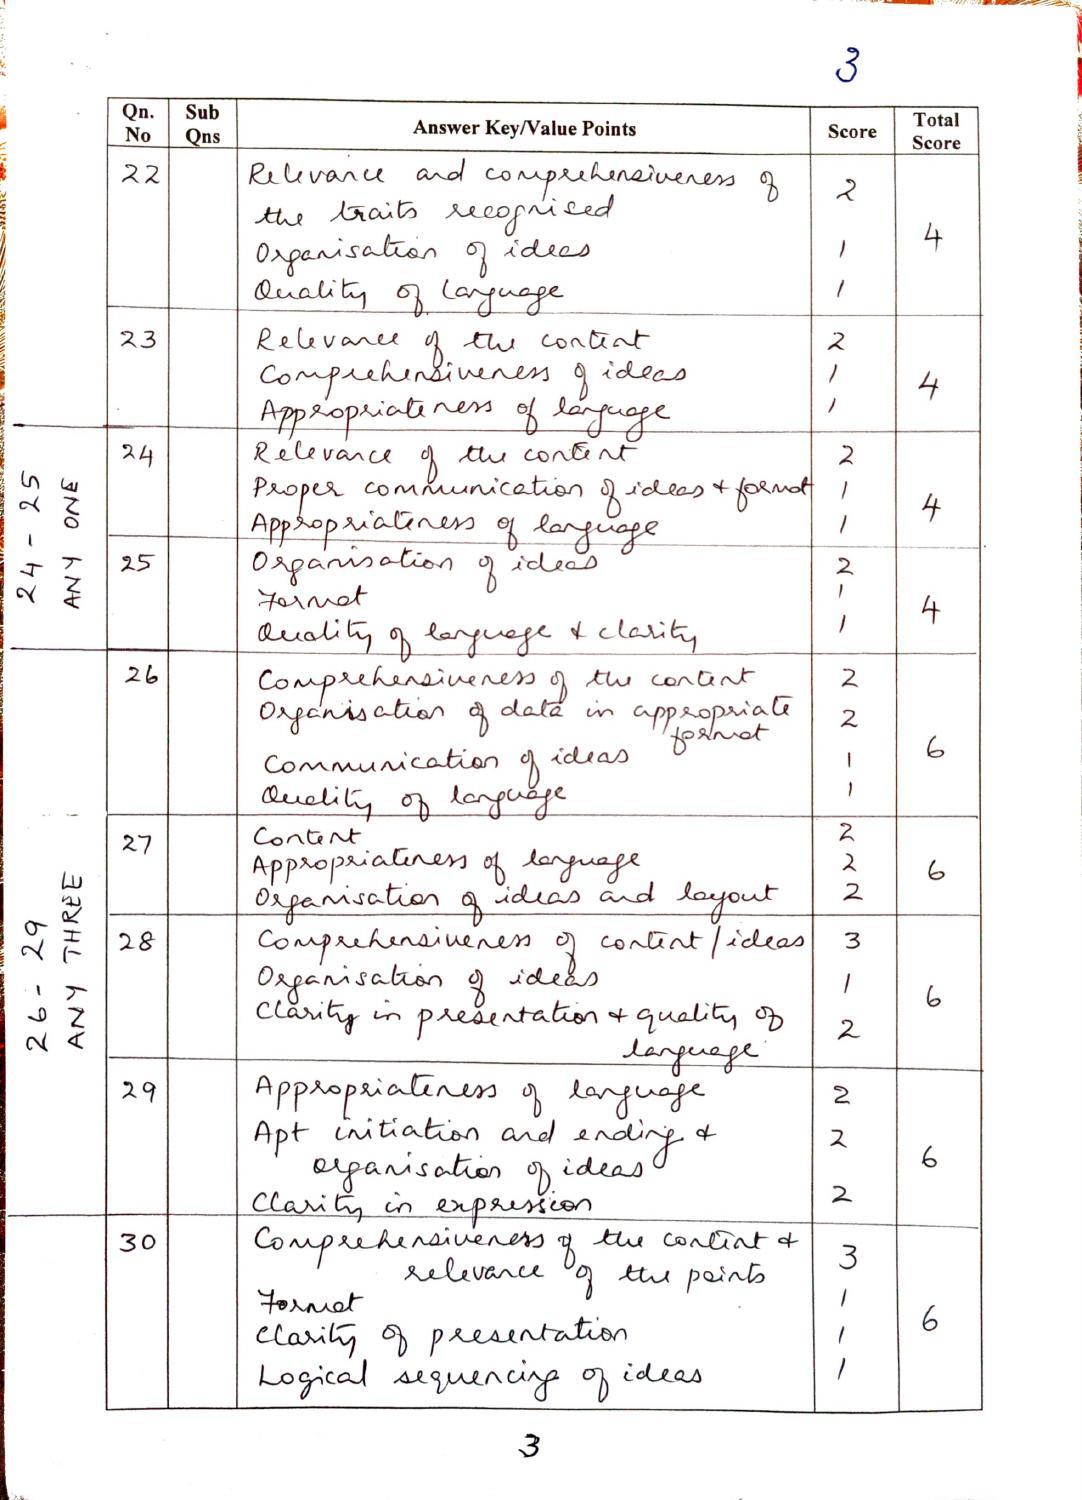 3
Qn. No Sub Qns Answer Key/Value Points Score Total Score
22 Relevance and comprehensiveness of 2 4
the traits recognised
Organisation of ideas 1
Quality of language 1
23 Relevance of the content 2 4
Comprehensiveness of ideas 1
Appropriateness of language 1
24 - 25
ANY ONE
24 Relevance of the content 2 4
Proper communication of ideas + format 1
Appropriateness of language 1
25 Organisation of ideas 2 4
Format 1
Quality of language + clarity 1
26 Comprehensiveness of the content 2 6
Organisation of data in appropriate 2
format
Communication of ideas 1
Quality of language 1
26 - 29
ANY THREE
27 Content 2 6
Appropriateness of language 2
Organisation of ideas and layout 2
28 Comprehensiveness of content/ideas 3 6
Organisation of ideas 1
Clarity in presentation + quality of 2
language
29 Appropriateness of language 2 6
Apt initiation and ending + 2
organisation of ideas
Clarity in expression 2
30 Comprehensiveness of the content + 3 6
relevance of the points
Format 1
Clarity of presentation 1
Logical sequencing of ideas 1
3